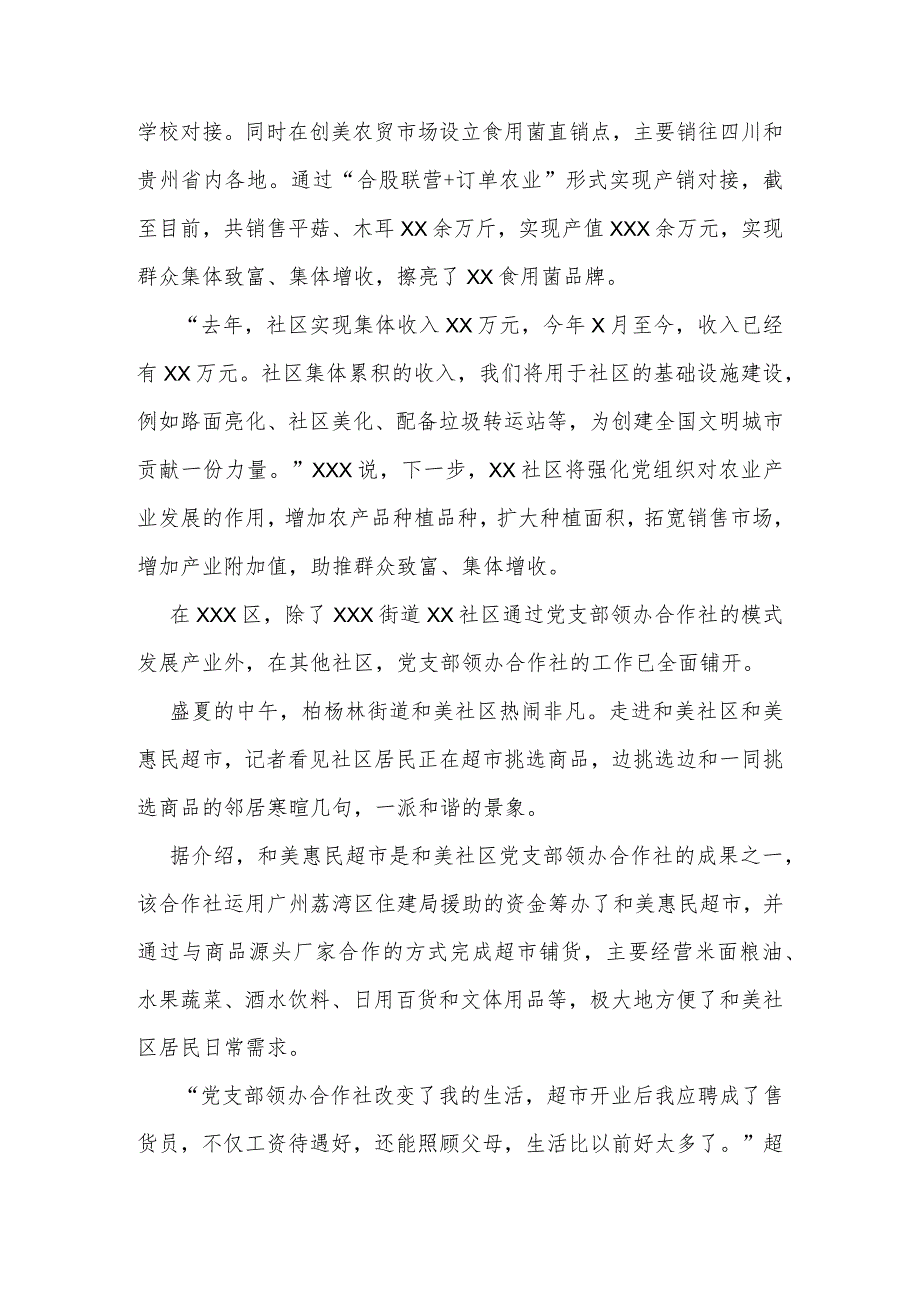 学校对接。同时在创美农贸市场设立食用菌直销点，主要销往四川和
贵州省内各地。通过“合股联营+订单农业”形式实现产销对接，截
至目前，共销售平菇、木耳 XX 余万斤，实现产值 XXX 余万元，实现
群众集体致富、集体增收，擦亮了 XX 食用菌品牌。
“去年，社区实现集体收入 XX 万元，今年 X 月至今，收入已经
有 XX 万元。社区集体累积的收入，我们将用于社区的基础设施建设，
例如路面亮化、社区美化、配备垃圾转运站等，为创建全国文明城市
贡献一份力量。”XXX 说，下一步，XX 社区将强化党组织对农业产
业发展的作用，增加农产品种植品种，扩大种植面积，拓宽销售市场，
增加产业附加值，助推群众致富、集体增收。
在 XXX 区，除了 XXX 街道 XX 社区通过党支部领办合作社的模式
发展产业外，在其他社区，党支部领办合作社的工作已全面铺开。
盛夏的中午，柏杨林街道和美社区热闹非凡。走进和美社区和美
惠民超市，记者看见社区居民正在超市挑选商品，边挑选边和一同挑
选商品的邻居寒暄几句，一派和谐的景象。
据介绍，和美惠民超市是和美社区党支部领办合作社的成果之一，
该合作社运用广州荔湾区住建局援助的资金筹办了和美惠民超市，并
通过与商品源头厂家合作的方式完成超市铺货，主要经营米面粮油、
水果蔬菜、酒水饮料、日用百货和文体用品等，极大地方便了和美社
区居民日常需求。
“党支部领办合作社改变了我的生活，超市开业后我应聘成了售
货员，不仅工资待遇好，还能照顾父母，生活比以前好太多了。”超